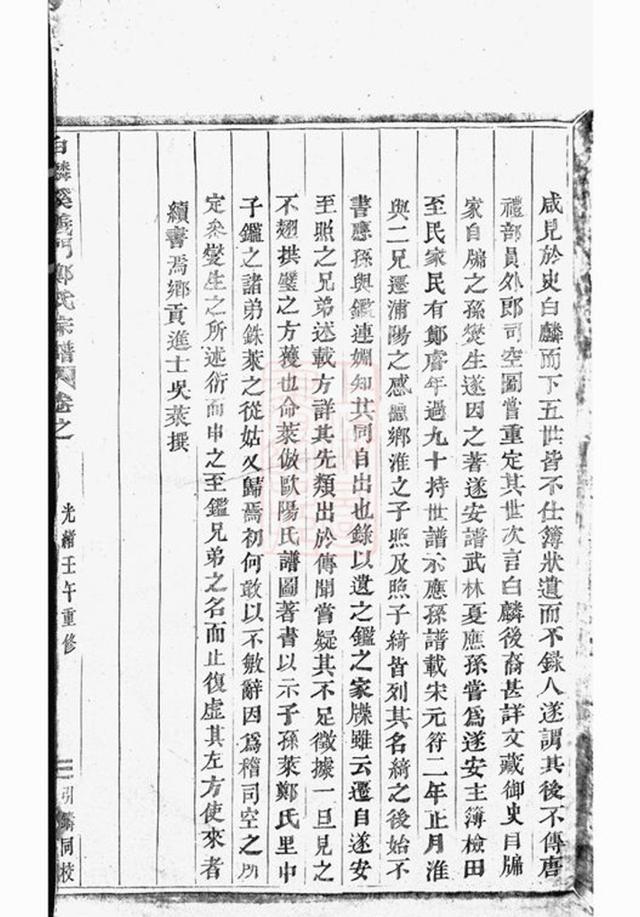 咸見於史白麟而下五世皆不仕簿狀遺而不錄人遂謂其後不傳唐
禮部員外郎司空圖嘗重定其世次言白麟後裔甚詳文藏御史目牖
家自牖之孫燮生遂因之著遂安譜武林夏應孫嘗爲遂安主簿檢田
至民家民有鄭睿年過九十持世譜示應孫譜載宋元符二年正月淮
與二兄遷浦陽之感德鄉淮之子照及照子綺皆列其名綺之後始不
書應孫與鑑連姻知其同自出也錄以遺之鑑之家牒雖云遷自遂安
至照之兄弟述載方詳其先類出於傳聞嘗疑其不足徵據一旦見之
不翅拱璧之方獲也命萊倣歐陽氏譜圖著書以示子孫萊鄭氏里中
子鑑之諸弟銖萊之從姑又歸焉初何敢以不敏辭因爲稽司空之所
定參燮生之所述衍而申之至鑑兄弟之名而止復虛其左方使來者
續書焉鄉貢進士吳萊撰
白麟溪義門鄭氏宗譜 卷之
光緒壬午重修
二 引麟同校